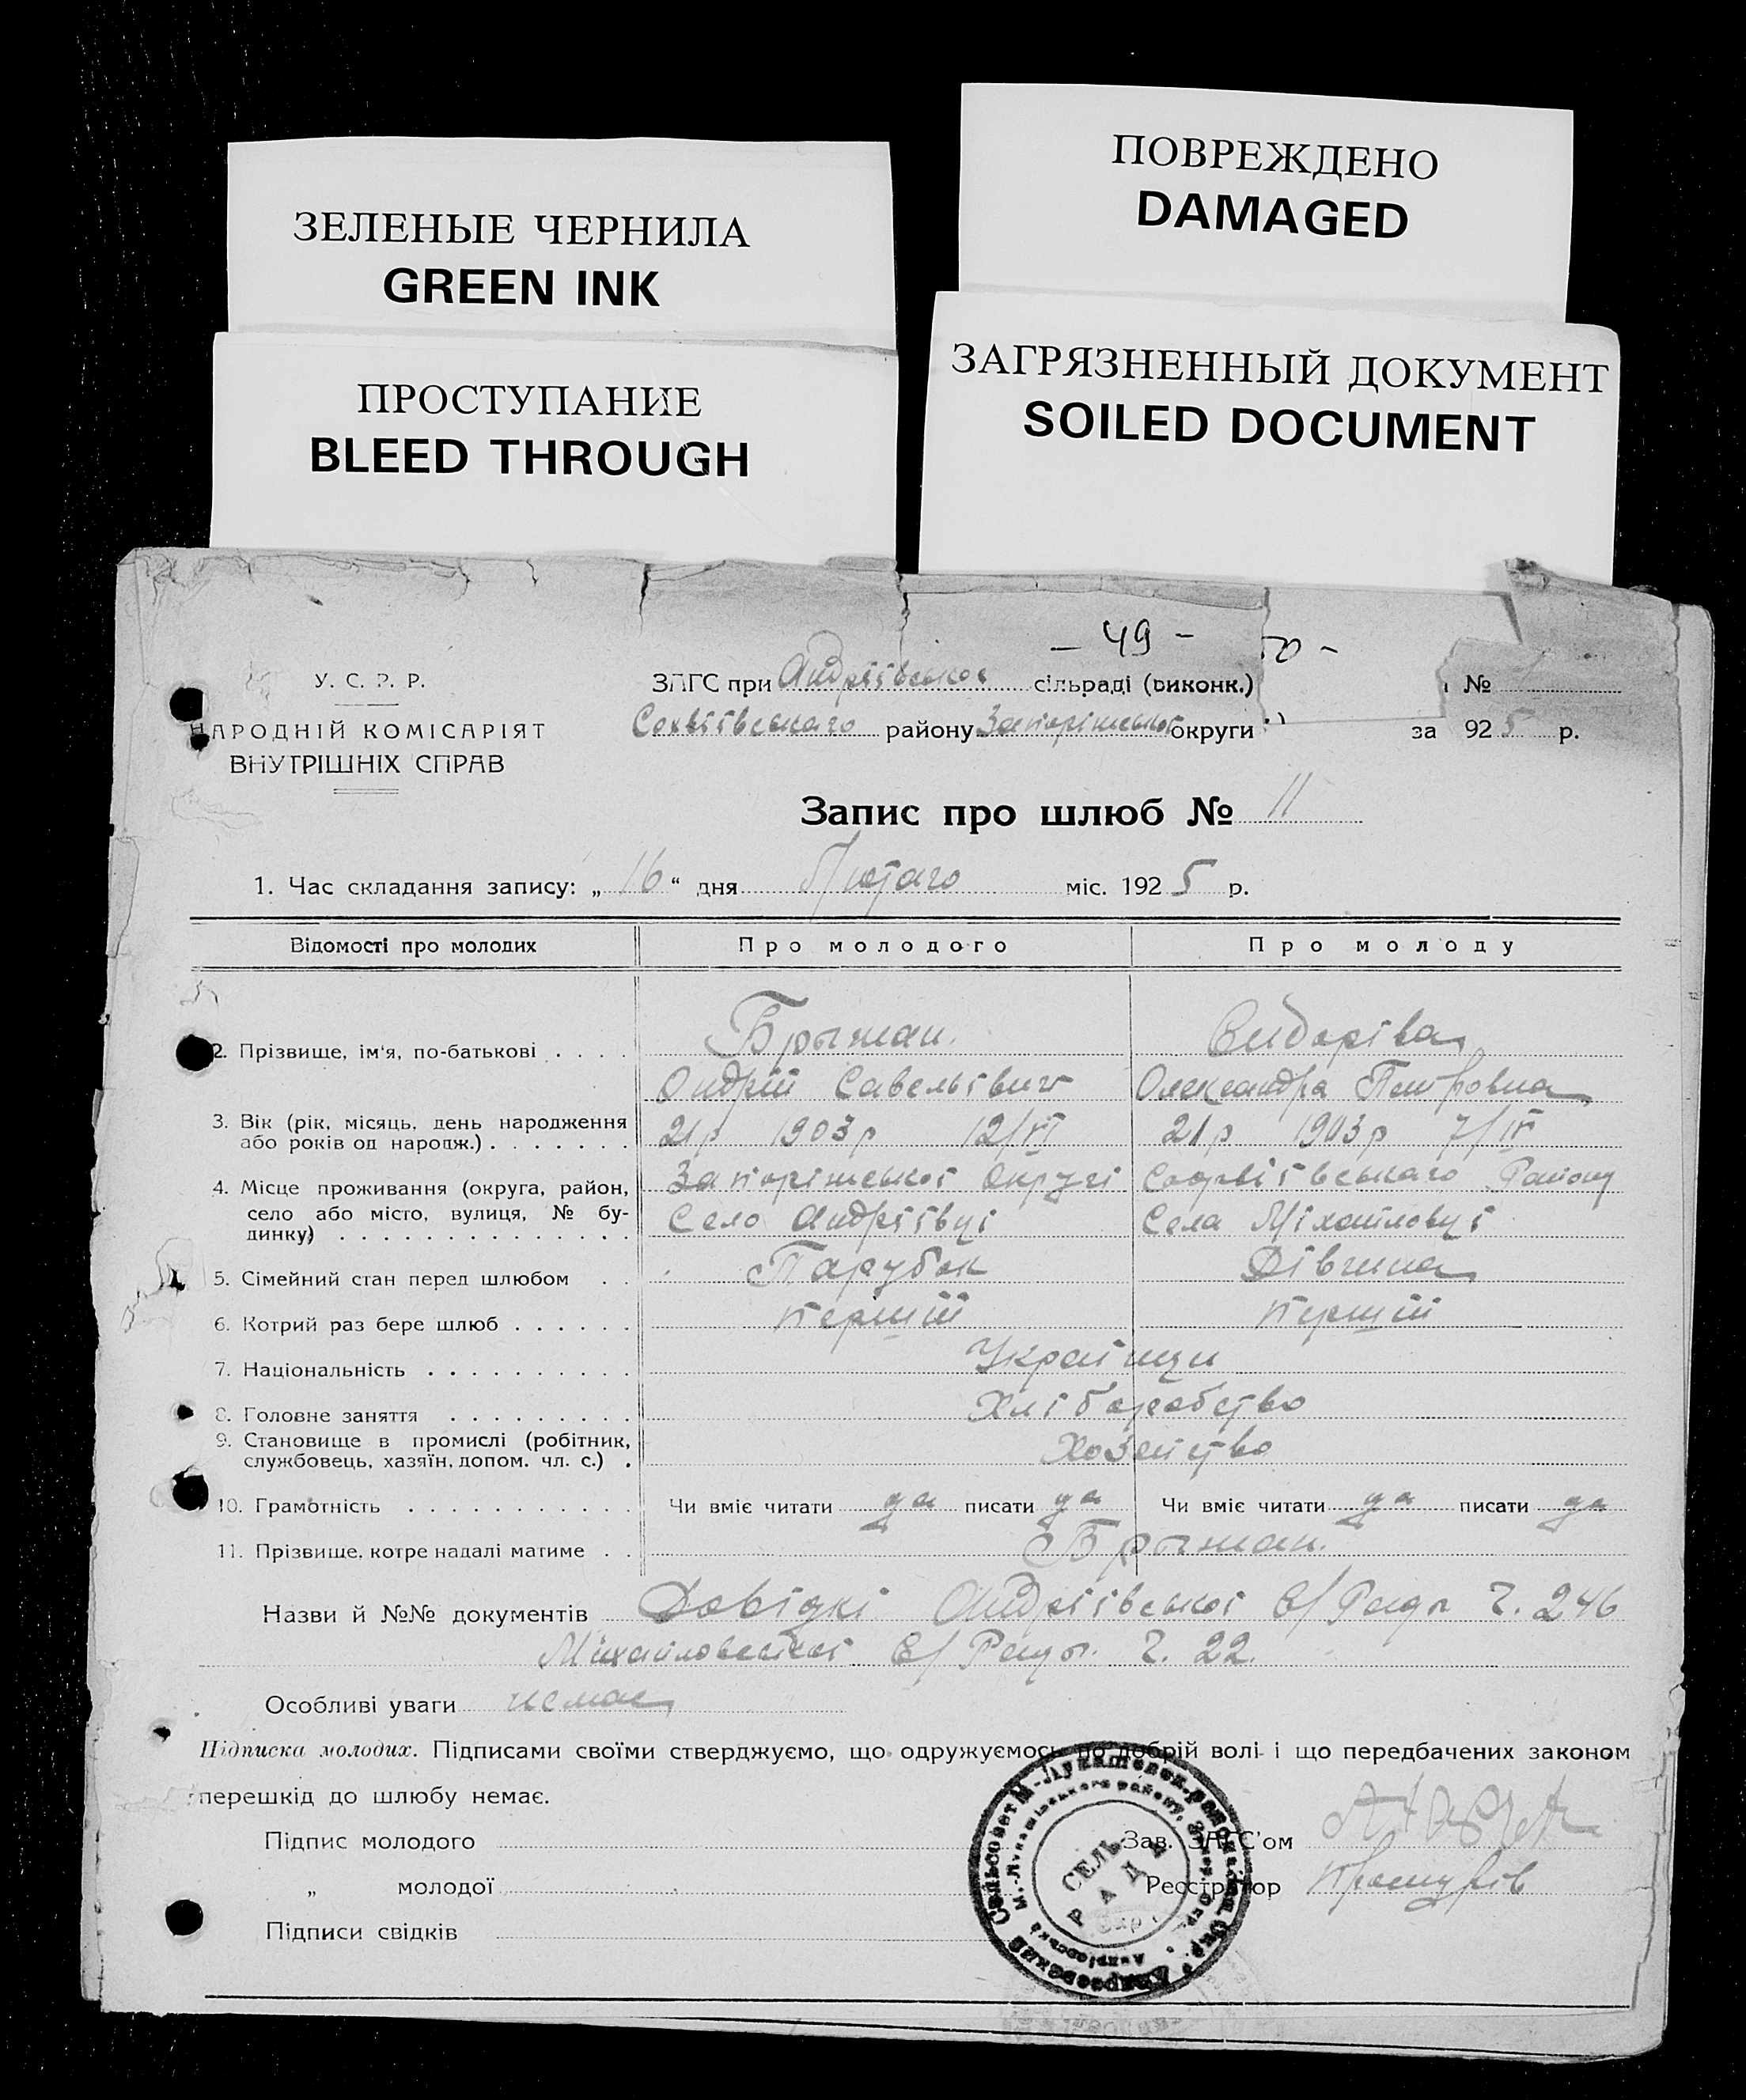 ЗЕЛЕНЫЕ ЧЕРНИЛА
GREEN INK
ПОВРЕЖДЕНО
DAMAGED
ПРОСТУПАНИЕ
BLEED THROUGH
ЗАГРЯЗНЕННЫЙ ДОКУМЕНТ
SOILED DOCUMENT
— 49 —
У. С. Р. Р.
НАРОДНІЙ КОМІСАРІЯТ
ВНУТРІШНІХ СПРАВ
ЗАГС при Андріївськоі сільраді (виконк.) №
Софіївського району Запоріжськоі округи за 1925 р.
Запис про шлюб № 11
1. Час складання запису: „16" дня Лютаго міс. 1925 р.
Відомості про молодих Про молодого Про молоду
2. Прізвище, ім'я, по-батькові . . . . Брыжан. Сидоріва
Андрій Савельівич Олександра Петровна
3. Вік (рік, місяць, день народження або років од народж.) . . . . . . . 21 р 1903 р 12/VI 21 р 1903 р 7/IV
4. Місце проживання (округа, район, село або місто, вулиця, № будинку) Запоріжськоі Округі Софиівського Району
Село Андріівці Села Міхайловці
5. Сімейний стан перед шлюбом . . Парубок Дівчина
6. Котрий раз бере шлюб . . . . . . першій першій
7. Національність . . . . . . . . . . Украінци
8. Головне заняття . . . . . . . . . Хліборобство
9. Становище в промислі (робітник, службовець, хазяїн, допом. чл. с.) . Хозайство
10. Грамотність . . . . . . . . . . . Чи вміє читати да писати да Чи вміє читати да писати да
11. Прізвище, котре надалі матиме . . Брыжан.
Назви й №№ документів Довідкі Андріівськоі С/Рады Ч. 246
Михайловськоі С/Рады. Ч. 22.
Особливі уваги немае
Підписка молодих. Підписами своїми стверджуємо, що одружуємось по добрій волі і що передбачених законом
перешкід до шлюбу немає.
Підпис молодого Зав. ЗАГС'ом
„ молодої Реєстратор
Підписи свідків
СЕЛЬ
РАДА